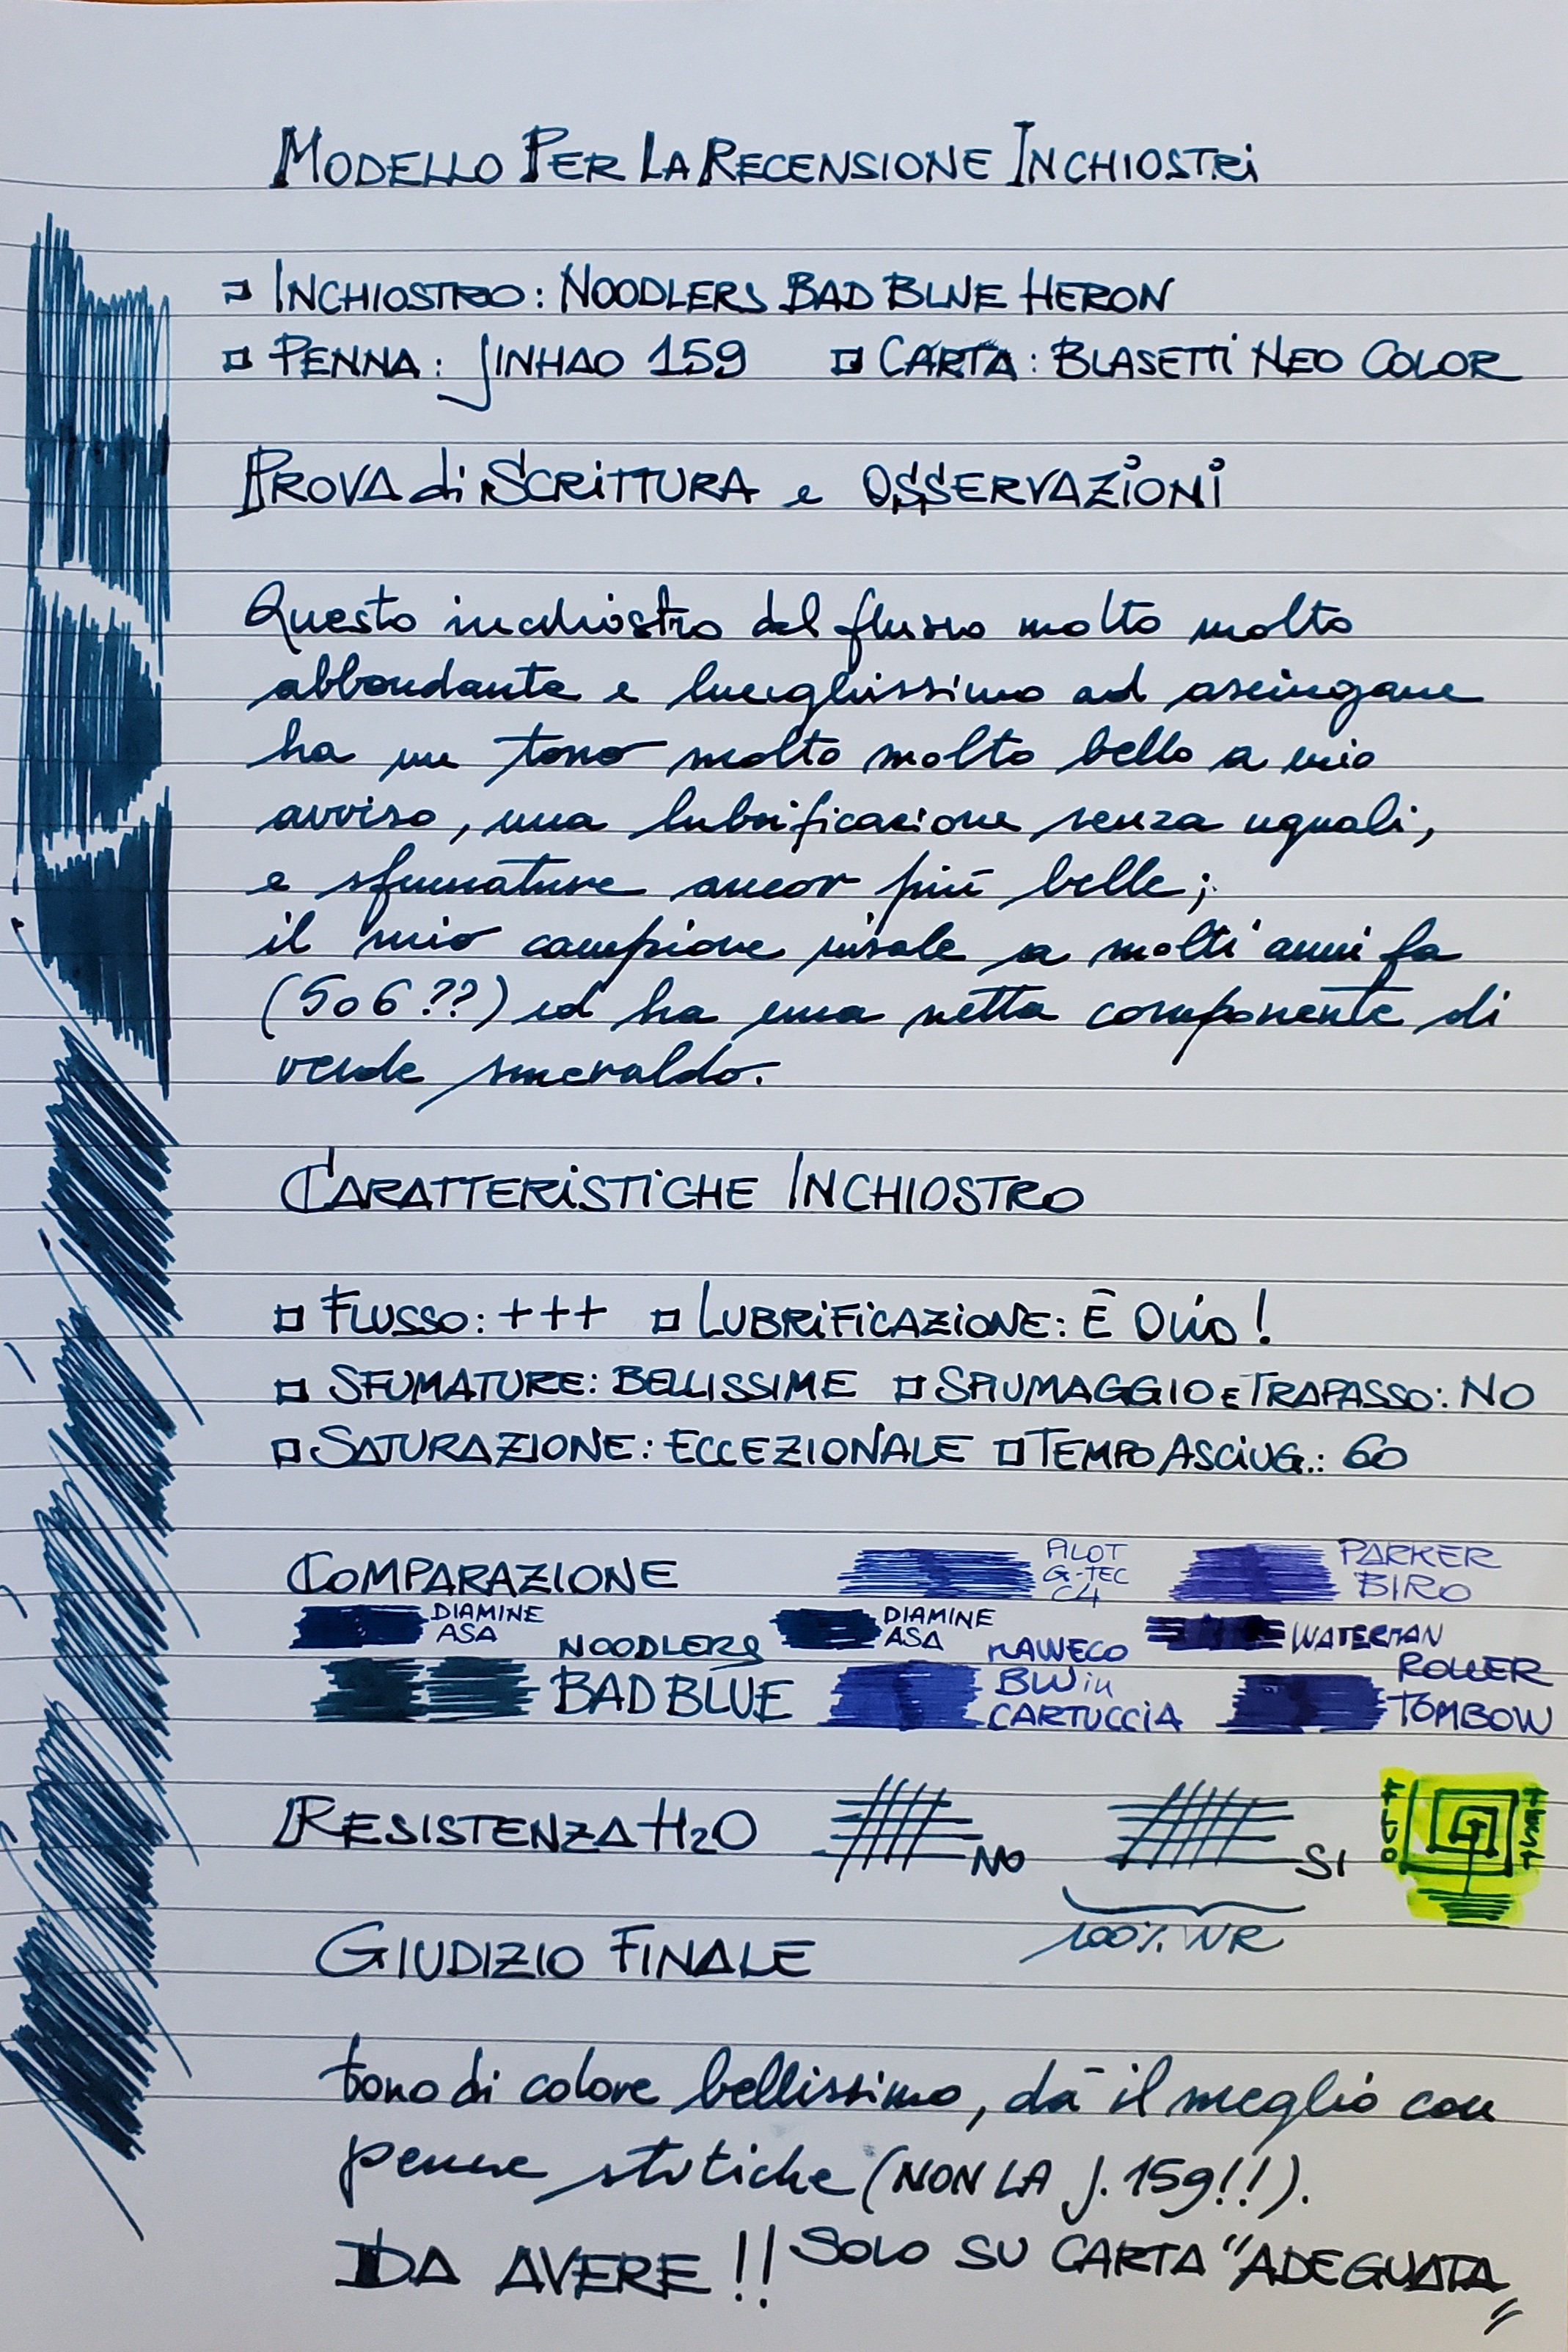 MODELLO PER LA RECENSIONE INCHIOSTRI
INCHIOSTRO: NOODLERS BAD BLUE HERON
PENNA: JINHAO 159 CARTA: BLASETTI NEO COLOR
PROVA di SCRITTURA e OSSERVAZIONI
Questo inchiostro dal flusso molto molto
abbondante e lunghissimo ad asciugare
ha un tono molto molto bello a mio
avviso, una lubrificazione senza uguali,
e sfumature ancor più belle;
il mio campione risale a molti anni fa
(5 o 6 ??) ed ha una netta componente di
verde smeraldo.
CARATTERISTICHE INCHIOSTRO
FLUSSO: +++ LUBRIFICAZIONE: È Olio!
SFUMATURE: BELLISSIME SPIUMAGGIO E TRAPASSO: NO
SATURAZIONE: ECCEZIONALE TEMPO ASCIUG.: 60
COMPARAZIONE
PILOT
G-TEC
C4
PARKER
BIRO
DIAMINE
ASA
DIAMINE
ASA
WATERMAN
NOODLERS
BAD BLUE
KAWECO
BLU in
CARTUCCIA
ROLLER
TOMBOW
RESISTENZA H2O NO SI
100% WR
GIUDIZIO FINALE
tono di colore bellissimo, dà il meglio con
penne stitiche (NON LA J. 159!!).
DA AVERE!! SOLO SU CARTA "ADEGUATA"